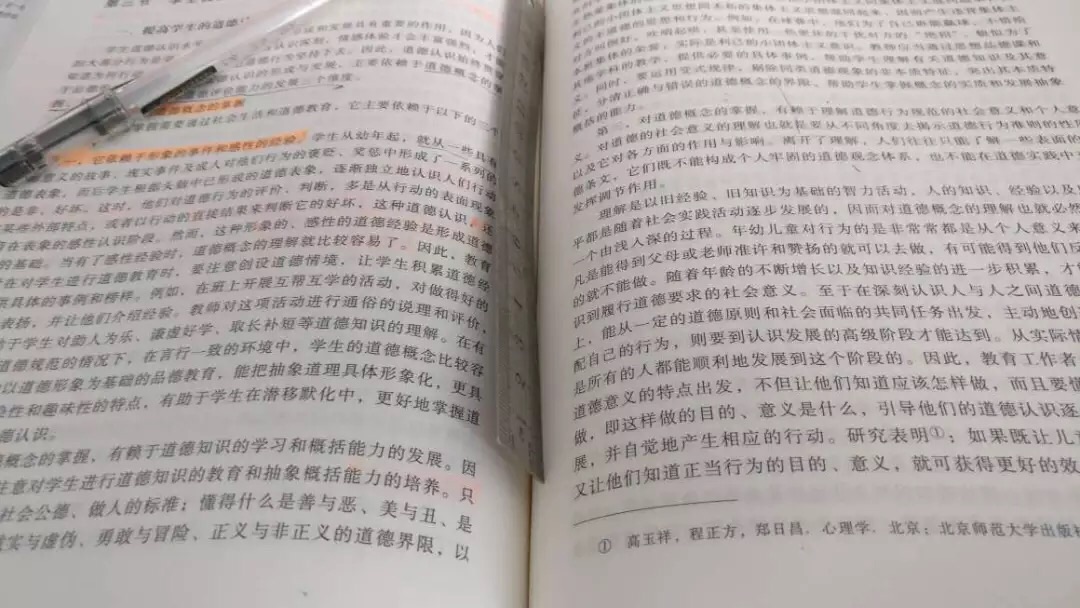 一、提高学生的道德
学生道德认识水
掌握需要通过社会生活和道德教育，它主要依赖于以下的三个
一，它依赖于形象的事件和感性的经验。学生从幼年起，就从一些具有
意义的故事、现实事件及成人对他们行为的褒贬、奖惩中形成了一系列的
道德表象，而后学生根据头脑中已形成的道德表象，逐渐独立地认识人们行动
的是非、好坏。这时，他们对道德行为的评价、判断，多是从行动的表面现象
某些外部特点，或者以行动的直接结果来判断它的好坏，这种道德认识，还
留在表象的感性认识阶段。然而，这种形象的、感性的道德经验是形成道德
的基础。当有了感性经验时，道德概念的理解就比较容易了。因此，教育
在对学生进行道德教育时，要注意创设道德情境，让学生积累道德经
供具体的事例和榜样。例如，在班上开展互帮互学的活动，对做得好的
表扬，并让他们介绍经验。教师对这项活动进行通俗的说理和评价，
助于学生对助人为乐、谦虚好学、取长补短等道德知识的理解。在有
道德规范的情况下，在言行一致的环境中，学生的道德概念比较容
以道德形象为基础的品德教育，能把抽象道理具体形象化，更具
性和趣味性的特点，有助于学生在潜移默化中，更好地掌握道
德认识。
概念的掌握，有赖于道德知识的学习和概括能力的发展。因
注意对学生进行道德知识的教育和抽象概括能力的培养。只
社会公德、做人的标准；懂得什么是善与恶、美与丑、是
诚实与虚伪、勇敢与冒险、正义与非正义的道德界限，以
本班集体的荣誉；实际是利己的小团体主义意识。教师应当通过思想品德课和
其他学科的教学，提供必要的具体事例，帮助学生理解有关道德知识及其意
义。同时，要运用变式规律，剔除同类道德现象的非本质特征，突出其本质特
征，分清正确与错误的道德概念的界限，帮助学生掌握概念的实质和发展抽象
概括的能力。
第三，对道德概念的掌握，有赖于理解道德行为规范的社会意义和个人意
义。对道德的社会意义的理解也就是要从不同角度去揭示道德行为准则的性质
以及它对各方面的作用与影响。离开了理解，人们往往只能了解一些表面的
德条文，它们既不能构成个人牢固的道德观念体系，也不能在道德实践中
发挥调节作用。
理解是以旧经验、旧知识为基础的智力活动，人的知识、经验以及
平都是随着社会实践活动逐步发展的，因而对道德概念的理解也就必然
一个由浅入深的过程。年幼儿童对行为的是非常常都是从个人意义来
凡是能得到父母或老师准许和赞扬的就可以去做，有可能得到他们反
的就不能做。随着年龄的不断增长以及知识经验的进一步积累，才
识到履行道德要求的社会意义。至于在深刻认识人与人之间道德
上，能从一定的道德原则和社会面临的共同任务出发，主动地创
配自己的行为，则要到认识发展的高级阶段才能达到。从实际情
是所有的人都能顺利地发展到这个阶段的。因此，教育工作者
道德意义的特点出发，不但让他们知道应该怎样做，而且要懂
做，即这样做的目的、意义是什么，引导他们的道德认识逐
展，并自觉地产生相应的行动。研究表明①；如果既让儿童
又让他们知道正当行为的目的、意义，就可获得更好的效
① 高玉祥，程正方，郑日昌．心理学．北京：北京师范大学出版社